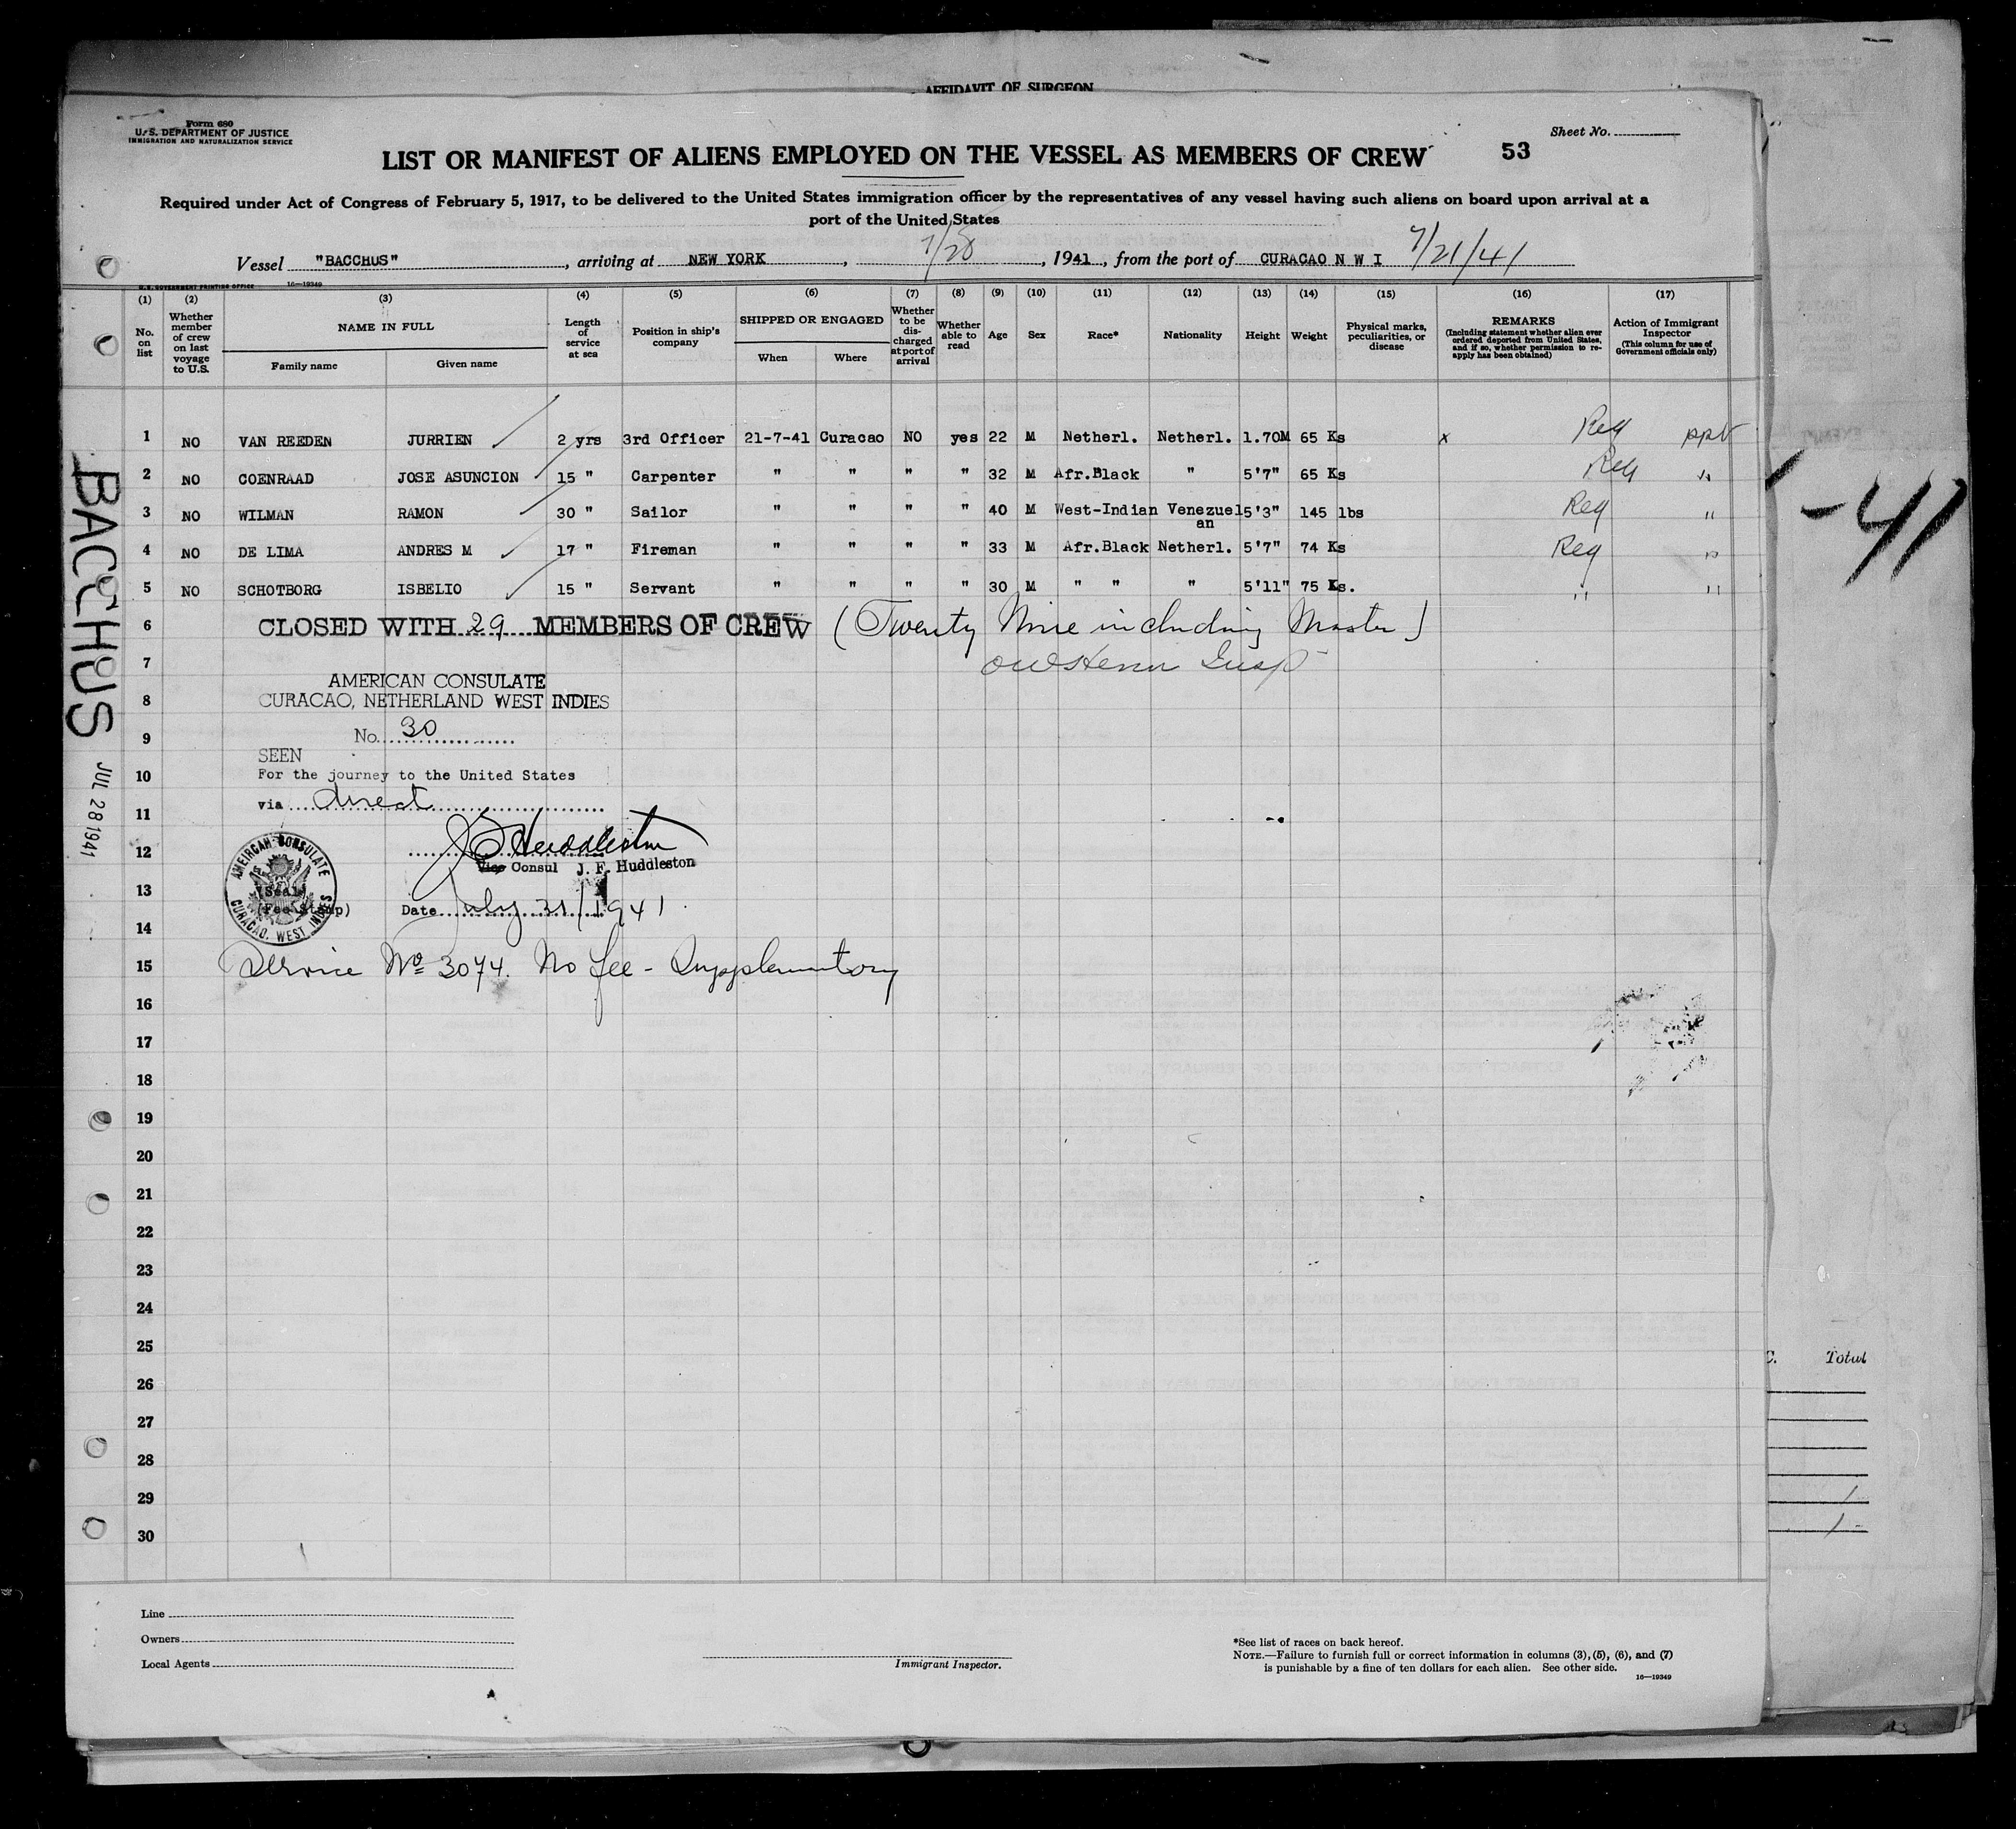 AFFIDAVIT OF SURGEON
Form 680
U. S. DEPARTMENT OF JUSTICE
IMMIGRATION AND NATURALIZATION SERVICE
Sheet No.
LIST OR MANIFEST OF ALIENS EMPLOYED ON THE VESSEL AS MEMBERS OF CREW 53
Required under Act of Congress of February 5, 1917, to be delivered to the United States immigration officer by the representatives of any vessel having such aliens on board upon arrival at a
port of the United States
Vessel "BACCHUS", arriving at NEW YORK, 7/28, 1941, from the port of CURACAO N W I 7/21/41
U.S. GOVERNMENT PRINTING OFFICE 16—19349
(1) (2) (3) (4) (5) (6) (7) (8) (9) (10) (11) (12) (13) (14) (15) (16) (17)
No. on list
Whether member of crew on last voyage to U.S.
NAME IN FULL
Family name Given name
Length of service at sea
Position in ship's company
SHIPPED OR ENGAGED
When Where
Whether to be discharged at port of arrival
Whether able to read
Age
Sex
Race*
Nationality
Height
Weight
Physical marks, peculiarities, or disease
REMARKS
(Including statement whether alien ever ordered deported from United States, and if so, whether permission to re-apply has been obtained)
Action of Immigrant Inspector
(This column for use of Government officials only)
1 NO VAN REEDEN JURRIEN 2 yrs 3rd Officer 21-7-41 Curacao NO yes 22 M Netherl. Netherl. 1.70M 65 Ks x Reg ppt
2 NO COENRAAD JOSE ASUNCION 15 " Carpenter " " " " 32 M Afr.Black " 5'7" 65 Ks Reg "
3 NO WILMAN RAMON 30 " Sailor " " " " 40 M West-Indian Venezuelan 5'3" 145 lbs Reg "
4 NO DE LIMA ANDRES M 17 " Fireman " " " " 33 M Afr.Black Netherl. 5'7" 74 Ks Reg "
5 NO SCHOTBORG ISBELIO 15 " Servant " " " " 30 M " " " 5'11" 75 Ks. " "
6 CLOSED WITH 29 MEMBERS OF CREW (Twenty Nine including Master)
7
AMERICAN CONSULATE
8 CURACAO, NETHERLAND WEST INDIES
9 No. 30
SEEN
10 For the journey to the United States
via direct
11
12 J F Huddleston
Vice Consul J. F. Huddleston
AMERICAN CONSULATE
CURACAO, WEST INDIES
13 (Seal)
(Fee Stamp) Date July 21/1941
14
15 Service No 3074. No fee - Supplementary
16
17
18
19
20
21
22
23
24
25
26
27
28
29
30
BACCHUS
JUL 28 1941
-41
C. Total
Line
Owners
Local Agents
Immigrant Inspector.
*See list of races on back hereof.
NOTE.—Failure to furnish full or correct information in columns (3), (5), (6), and (7)
is punishable by a fine of ten dollars for each alien. See other side.
16—19349